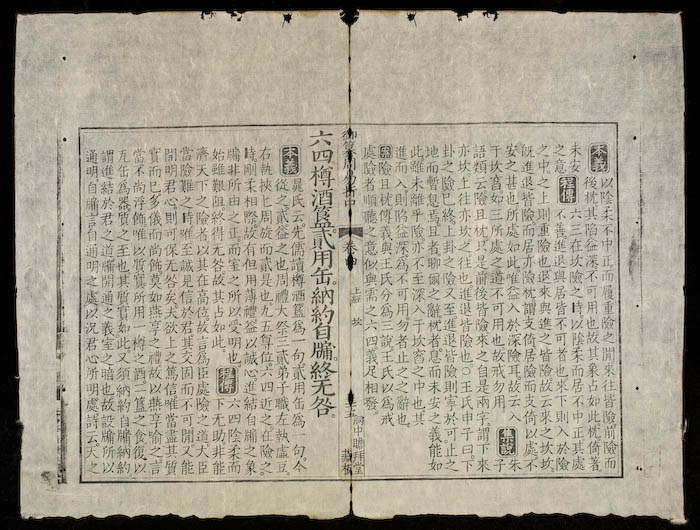 本義 以陰柔不中正而履重險之間來往皆險前險而
後枕其陷益深不可用也故其象占如此枕倚著
未安 程傳 六三在坎險之時以陰柔而居不中正其處
之意 不善進退與居皆不可者也來下則入於險
之中之上則重險也退來與進之皆險故云來之坎坎
既進退皆險而居亦險枕謂支倚居險而支倚以處不
安之甚也所處如此唯益入於深險耳故云入 集說 朱
于坎窞如三所處之道不可用也故戒勿用 子
語類云險且枕只是前後皆險來之自是兩字謂下來
亦坎上往亦坎之往也進退皆險也○王氏申子曰下
卦之險已終上卦之險又至進退皆險則寧於可止之
地而暫息焉且者聊爾之辭枕者息而未安之義能如
此雖未離乎險亦不至深入于坎窞之中也其
進而入則陷益深為不可用勿者止之之辭也
案 險且枕傳義與王氏分為三說王氏以爲戒
處險者順聽之意似與需之六四義足相發
御纂周易折中
上經 坎
六四樽酒簋貳用缶納約自牖終无咎
本義 晁氏云先儒讀樽酒簋為一句貳用缶為一句今
從之貳益之也周禮大祭三貳弟子職左執虛豆
右執挾匕周旋而貳是也九五尊位六四近之在險之
時剛柔相際故有但用薄禮益以誠心進結自牖之象
牖非所由之正而室之所以受明也 程傳 六四陰柔而
始雖艱阻終得无咎故其占如此 下无助非能
濟天下之險者以其在高位故言為臣處險之道大臣
當險難之時唯至誠見信於君其交固而不可間又能
開明君心則可保无咎矣夫欲上之篤信唯當盡其質
實而已多儀而尚飾莫如燕享之禮故以燕享喻之言
當不尚浮飾唯以質實所用一樽之酒二簋之食復以
瓦缶為器質之至也其質實如此又須納約自牖納約
謂進結於君之道牖開通之義室之暗也故設牖所以
通明自牖言自通明之處以況君心所明處詩云天之